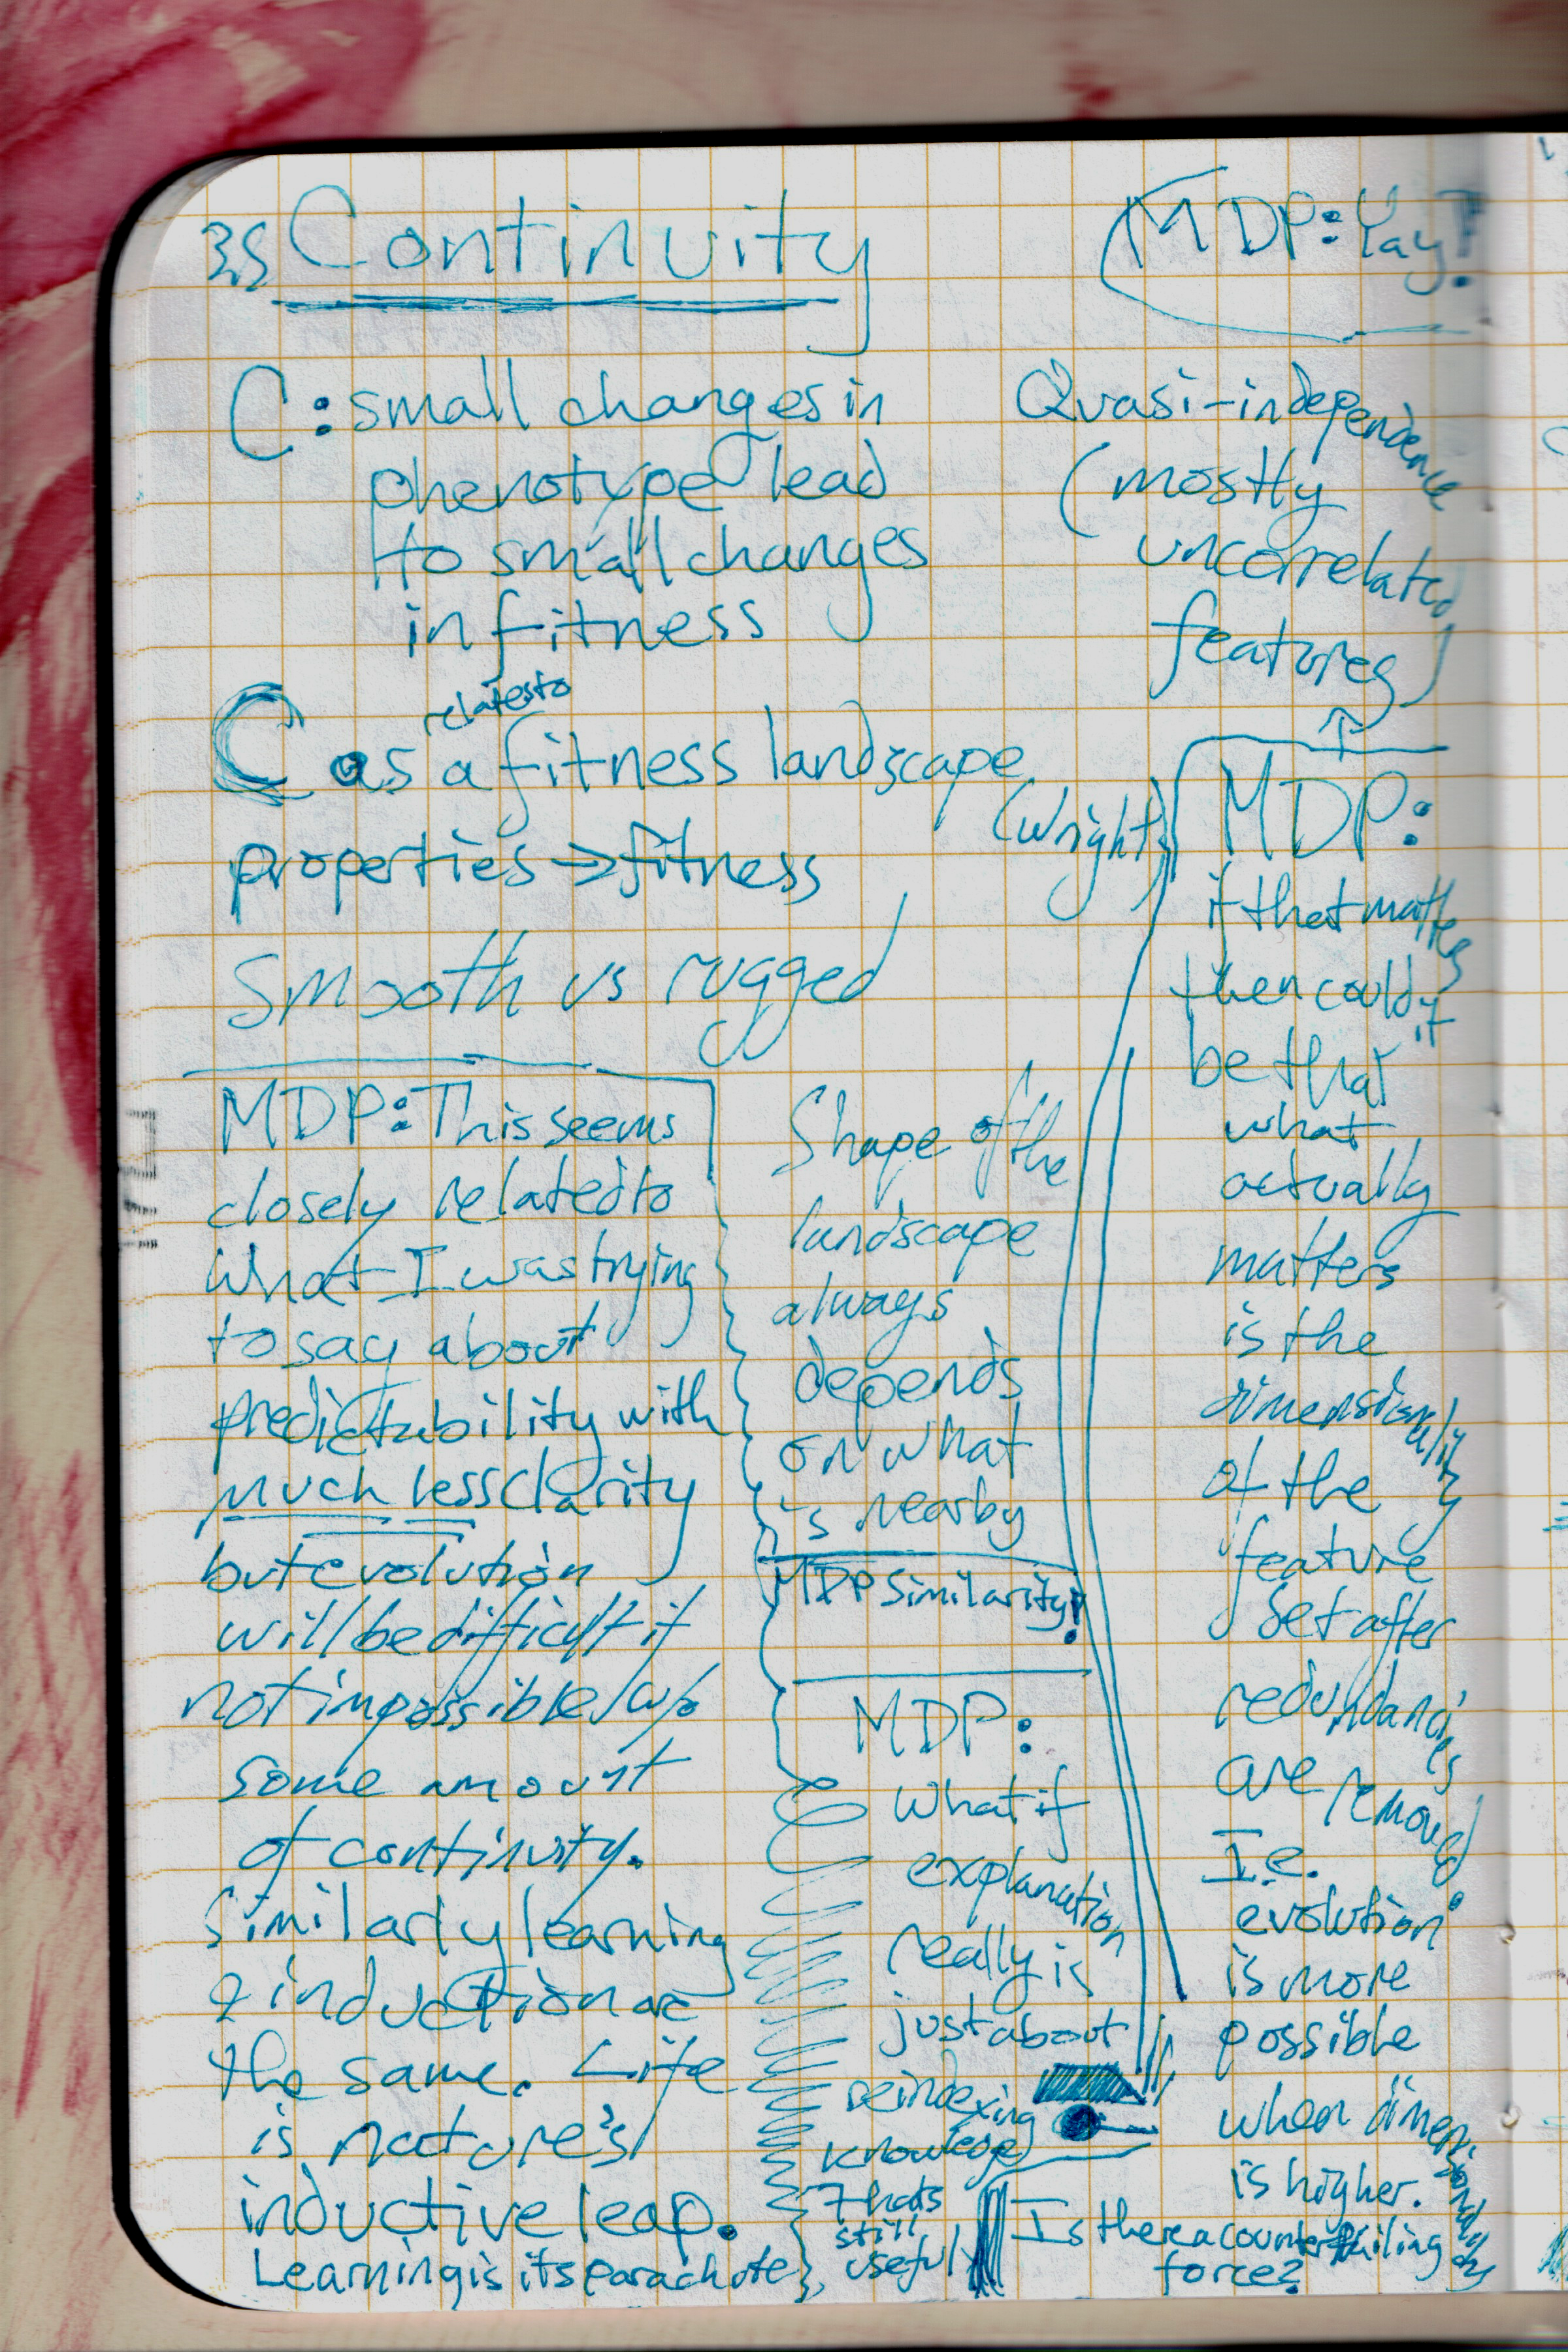 35 Continuity
C: small changes in
phenotype lead
to small changes
in fitness
relates to
C as a fitness landscape
(Wright)
properties → fitness
Smooth vs rugged
MDP: This seems
closely related to
what I was trying
to say about
predictability with
much less clarity
but evolution
will be difficult if
not impossible w/o
some amount
of continuity.
Similarly learning
& induction are
the same. Life
is nature's
inductive leap.
Learning is its parachute
Shape of the
landscape
always
depends
on what
is nearby
MDP Similarity!
MDP:
What if
explanation
really is
just about
reindexing
knowledge
Thats
still
useful
MDP: Yay!
Quasi-independence
(mostly
uncorrelated
features)
MDP:
if that matters
then could it
be that
what
actually
matters
is the
dimensionality
of the
feature
set after
redundancies
are removed.
I.e.
evolution
is more
possible
when dimensionality
is higher.
Is there a counterfailing
force?